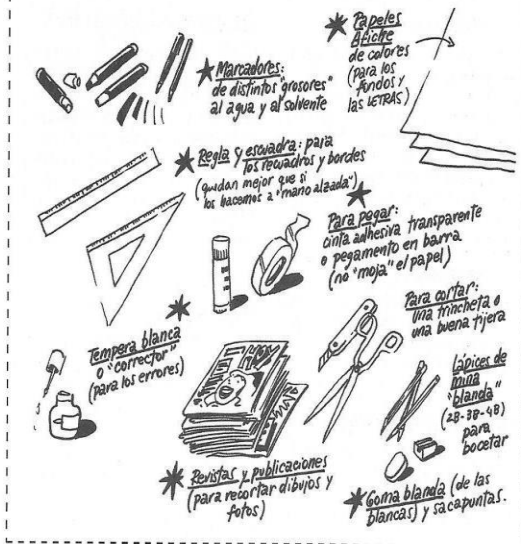 ★ Marcadores:
de distintos "grosores"
al agua y al solvente
★ Papeles
Afiche
de colores
(para los
fondos y
las LETRAS)
★ Regla y escuadra: para
los recuadros y bordes
(quedan mejor que si
los hacemos a "mano alzada")
★ Para pegar:
cinta adhesiva transparente
o pegamento en barra
(no "moja" el papel)
★ Tempera blanca
o "corrector"
(para los errores)
Para cortar:
una trincheta o
una buena tijera
Lápices de
mina
"blanda"
(2B-3B-4B)
para
bocetar
★ Revistas y publicaciones
(para recortar dibujos y
fotos)
★ Goma blanda (de las
blancas) y sacapuntas.